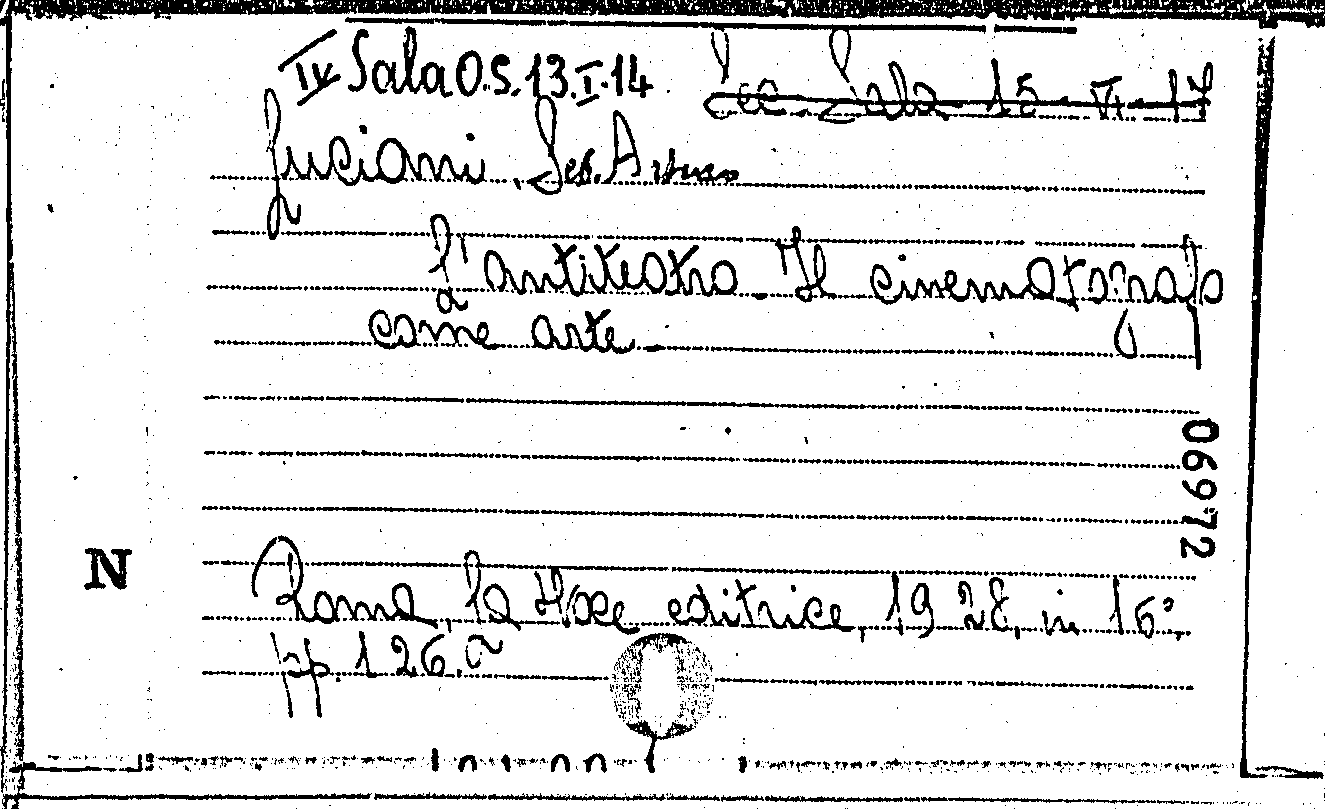 IV Sala O.S. 13.I.14 Sec. Sala 15-VI-17
Luciani, Seb. Arturo
L'antiteatro. Il cinematografo
come arte.
06972
N
Roma, La Voce editrice, 1928, in 16°,
pp. 126.